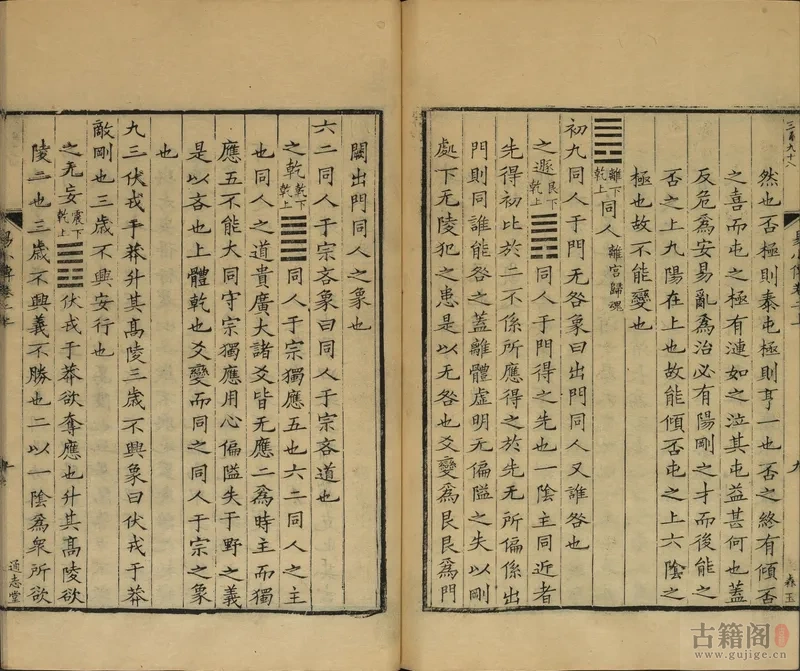 三百九十八
然也否極則泰屯極則亨一也否之終有傾否
之喜而屯之極有漣如之泣其屯益甚何也蓋
反危為安易亂為治必有陽剛之才而後能之
否之上九陽在上也故能傾否屯之上六陰之
極也故不能變也
離下乾上同人離宮歸魂
初九同人于門无咎象曰出門同人又誰咎也
之遯艮下乾上同人于門得之先也一陰主同近者
先得初比於二不係所應得之於先无所偏係出
門則同誰能咎之蓋離體虛明无偏隘之失以剛
處下无陵犯之患是以无咎也爻變為艮艮為門
易小傳卷二上
九
森玉
闕出門同人之象也
六二同人于宗吝象曰同人于宗吝道也
之乾乾下乾上同人于宗獨應五也六二同人之主
也同人之道貴廣大諸爻皆无應二為時主而獨
應五不能大同守宗獨應用心偏隘失于野之義
是以吝也上體乾也爻變而同之同人于宗之象
也
九三伏戎于莽升其高陵三歲不興象曰伏戎于莽
敵剛也三歲不興安行也
之无妄震下乾上伏戎于莽欲奪應也升其高陵欲
陵二也三歲不興義不勝也二以一陰為衆所欲
通志堂
古籍阁
www.gujige.cn